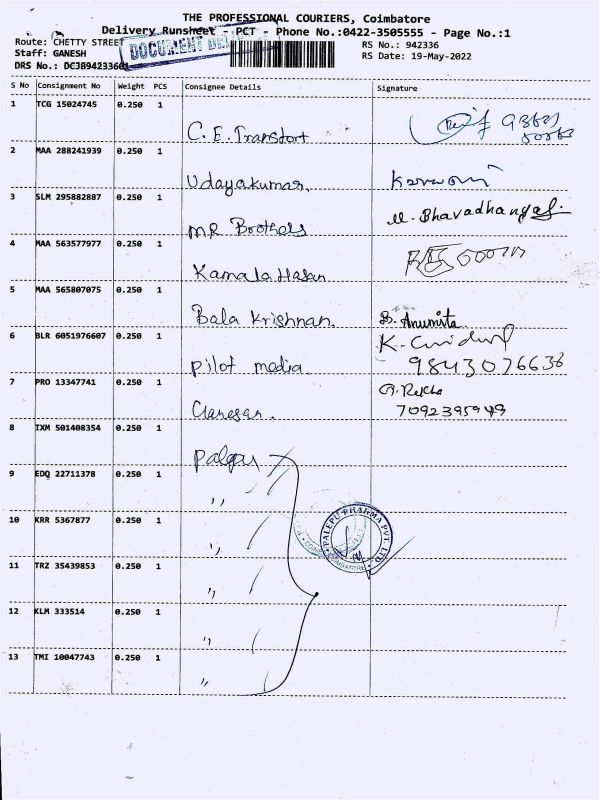 THE PROFESSIONAL COURIERS, Coimbatore
Delivery Runsheet - PCT - Phone No.:0422-3505555 - Page No.:1
Route: CHETTY STREET
RS No.: 942336
Staff: GANESH
DOCUMENT
RS Date: 19-May-2022
DRS No.: DCJB9423360
S No Consignment No Weight PCS Consignee Details Signature
1 TCG 15024745 0.250 1 C.E. Transport
2 MAA 288241939 0.250 1 Udayakumar.
3 SLM 295882887 0.250 1 MR Brothers
4 MAA 563577977 0.250 1 Kamala Hasan
5 MAA 565807075 0.250 1 Bala Krishnan. B. Anumita
6 BLR 6051976607 0.250 1 Pilot media. 9843076636
7 PRO 13347741 0.250 1 Ganesan. 7092395949
8 IXM 501408354 0.250 1 Palepu
9 EDQ 22711378 0.250 1 ,,
10 KRR 5367877 0.250 1 ,,
PALEPU PHARMA PVT. LTD.
11 TRZ 35439853 0.250 1 ,,
12 KLM 333514 0.250 1 ,,
13 TMI 10047743 0.250 1 ,,